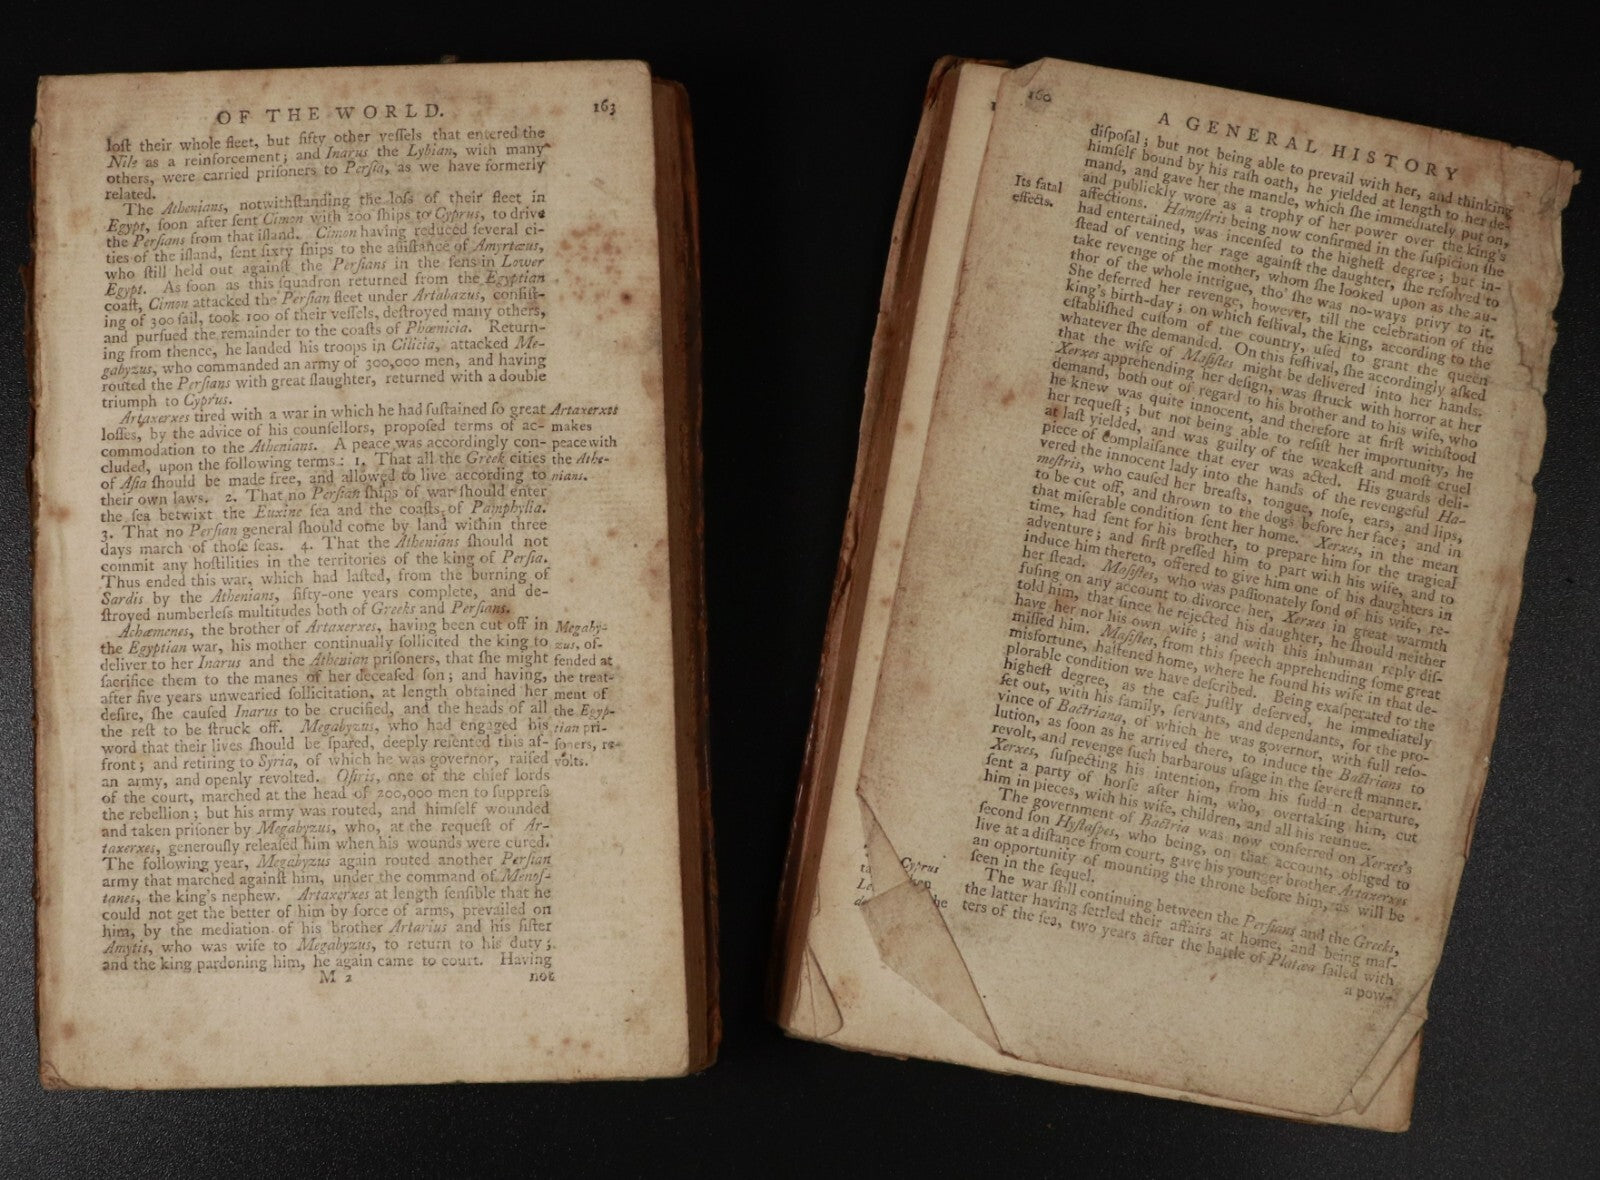 OF THE WORLD. 163
lost their whole fleet, but fifty other vessels that entered the
Nile as a reinforcement; and Inarus the Lybian, with many
others, were carried prisoners to Persia, as we have formerly
related.
The Athenians, notwithstanding the loss of their fleet in
Egypt, soon after sent Cimon with 200 ships to Cyprus, to drive
the Persians from that island. Cimon having reduced several ci-
ties of the island, sent sixty ships to the assistance of Amyrtæus,
who still held out against the Persians in the fens in Lower
Egypt. As soon as this squadron returned from the Egyptian
coast, Cimon attacked the Persian fleet under Artabazus, consist-
ing of 300 sail, took 100 of their vessels, destroyed many others,
and pursued the remainder to the coasts of Phœnicia. Return-
ing from thence, he landed his troops in Cilicia, attacked Me-
gabyzus, who commanded an army of 300,000 men, and having
routed the Persians with great slaughter, returned with a double
triumph to Cyprus.
Artaxerxes tired with a war in which he had sustained so great
losses, by the advice of his counsellors, proposed terms of ac-
commodation to the Athenians. A peace was accordingly con-
cluded, upon the following terms: 1. That all the Greek cities
of Asia should be made free, and allowed to live according to
their own laws. 2. That no Persian ships of war should enter
the sea betwixt the Euxine sea and the coasts of Pamphylia.
3. That no Persian general should come by land within three
days march of those seas. 4. That the Athenians should not
commit any hostilities in the territories of the king of Persia.
Thus ended this war, which had lasted, from the burning of
Sardis by the Athenians, fifty-one years complete, and de-
stroyed numberless multitudes both of Greeks and Persians.
Achæmenes, the brother of Artaxerxes, having been cut off in
the Egyptian war, his mother continually sollicited the king to
deliver to her Inarus and the Athenian prisoners, that she might
sacrifice them to the manes of her deceased son; and having,
after five years unwearied sollicitation, at length obtained her
desire, she caused Inarus to be crucified, and the heads of all
the rest to be struck off. Megabyzus, who had engaged his
word that their lives should be spared, deeply resented this af-
front; and retiring to Syria, of which he was governor, raised
an army, and openly revolted. Osiris, one of the chief lords
of the court, marched at the head of 200,000 men to suppress
the rebellion; but his army was routed, and himself wounded
and taken prisoner by Megabyzus, who, at the request of Ar-
taxerxes, generously released him when his wounds were cured.
The following year, Megabyzus again routed another Persian
army that marched against him, under the command of Menos-
tanes, the king's nephew. Artaxerxes at length sensible that he
could not get the better of him by force of arms, prevailed on
him, by the mediation of his brother Artarius and his sister
Amytis, who was wife to Megabyzus, to return to his duty;
and the king pardoning him, he again came to court. Having
M 2 not
Artaxerxes
makes
peace with
the Athe-
nians.
Megaby-
zus, of-
fended at
the treat-
ment of
the Egyp-
tian pri-
soners, re-
volts.
160 A GENERAL HISTORY
disposal; but not being able to prevail with her, and thinking
himself bound by his rash oath, he yielded at length to her de-
mand, and gave her the mantle, which she immediately put on,
and publickly wore as a trophy of her power over the king's
affections. Hamestris being now confirmed in the suspicion she
had entertained, was incensed to the highest degree; but in-
stead of venting her rage against the daughter, she resolved to
take revenge of the mother, whom she looked upon as the au-
thor of the whole intrigue, tho' she was no-ways privy to it.
She deferred her revenge, however, till the celebration of the
king's birth-day; on which festival, the king, according to the
established custom of the country, used to grant the queen
whatever she demanded. On this festival, she accordingly asked
that the wife of Masistes might be delivered into her hands.
Xerxes apprehending her design, was struck with horror at her
demand, both out of regard to his brother and to his wife, who
he knew was quite innocent, and therefore at first withstood
her request; but not being able to resist her importunity, he
at last yielded, and was guilty of the weakest and most cruel
piece of complaisance that ever was acted. His guards deli-
vered the innocent lady into the hands of the revengeful Ha-
mestris, who caused her breasts, tongue, nose, ears, and lips,
to be cut off, and thrown to the dogs before her face; and in
that miserable condition sent her home. Xerxes, in the mean
time, had sent for his brother, to prepare him for the tragical
adventure; and first pressed him to part with his wife, and to
induce him thereto, offered to give him one of his daughters in
her stead. Masistes, who was passionately fond of his wife, re-
fusing on any account to divorce her, Xerxes in great warmth
told him, that since he rejected his daughter, he should neither
have her nor his own wife; and with this inhuman reply dis-
missed him. Masistes, from this speech apprehending some great
misfortune, hastened home, where he found his wife in that de-
plorable condition we have described. Being exasperated to the
highest degree, as the case justly deserved, he immediately
set out, with his family, servants, and dependants, for the pro-
vince of Bactriana, of which he was governor, with full reso-
lution, as soon as he arrived there, to induce the Bactrians to
revolt, and revenge such barbarous usage in the severest manner.
Xerxes, suspecting his intention, from his sudd n departure,
sent a party of horse after him, who, overtaking him, cut
him in pieces, with his wife, children, and all his retinue.
The government of Bactria was now conferred on Xerxes's
second son Hystaspes, who being, on that account, obliged to
live at a distance from court, gave his younger brother Artaxerxes
an opportunity of mounting the throne before him, as will be
seen in the sequel.
The war still continuing between the Persians and the Greeks,
the latter having settled their affairs at home, and being mas-
ters of the sea, two years after the battle of Platæa sailed with
a pow-
Its fatal
effects.
Cyprus